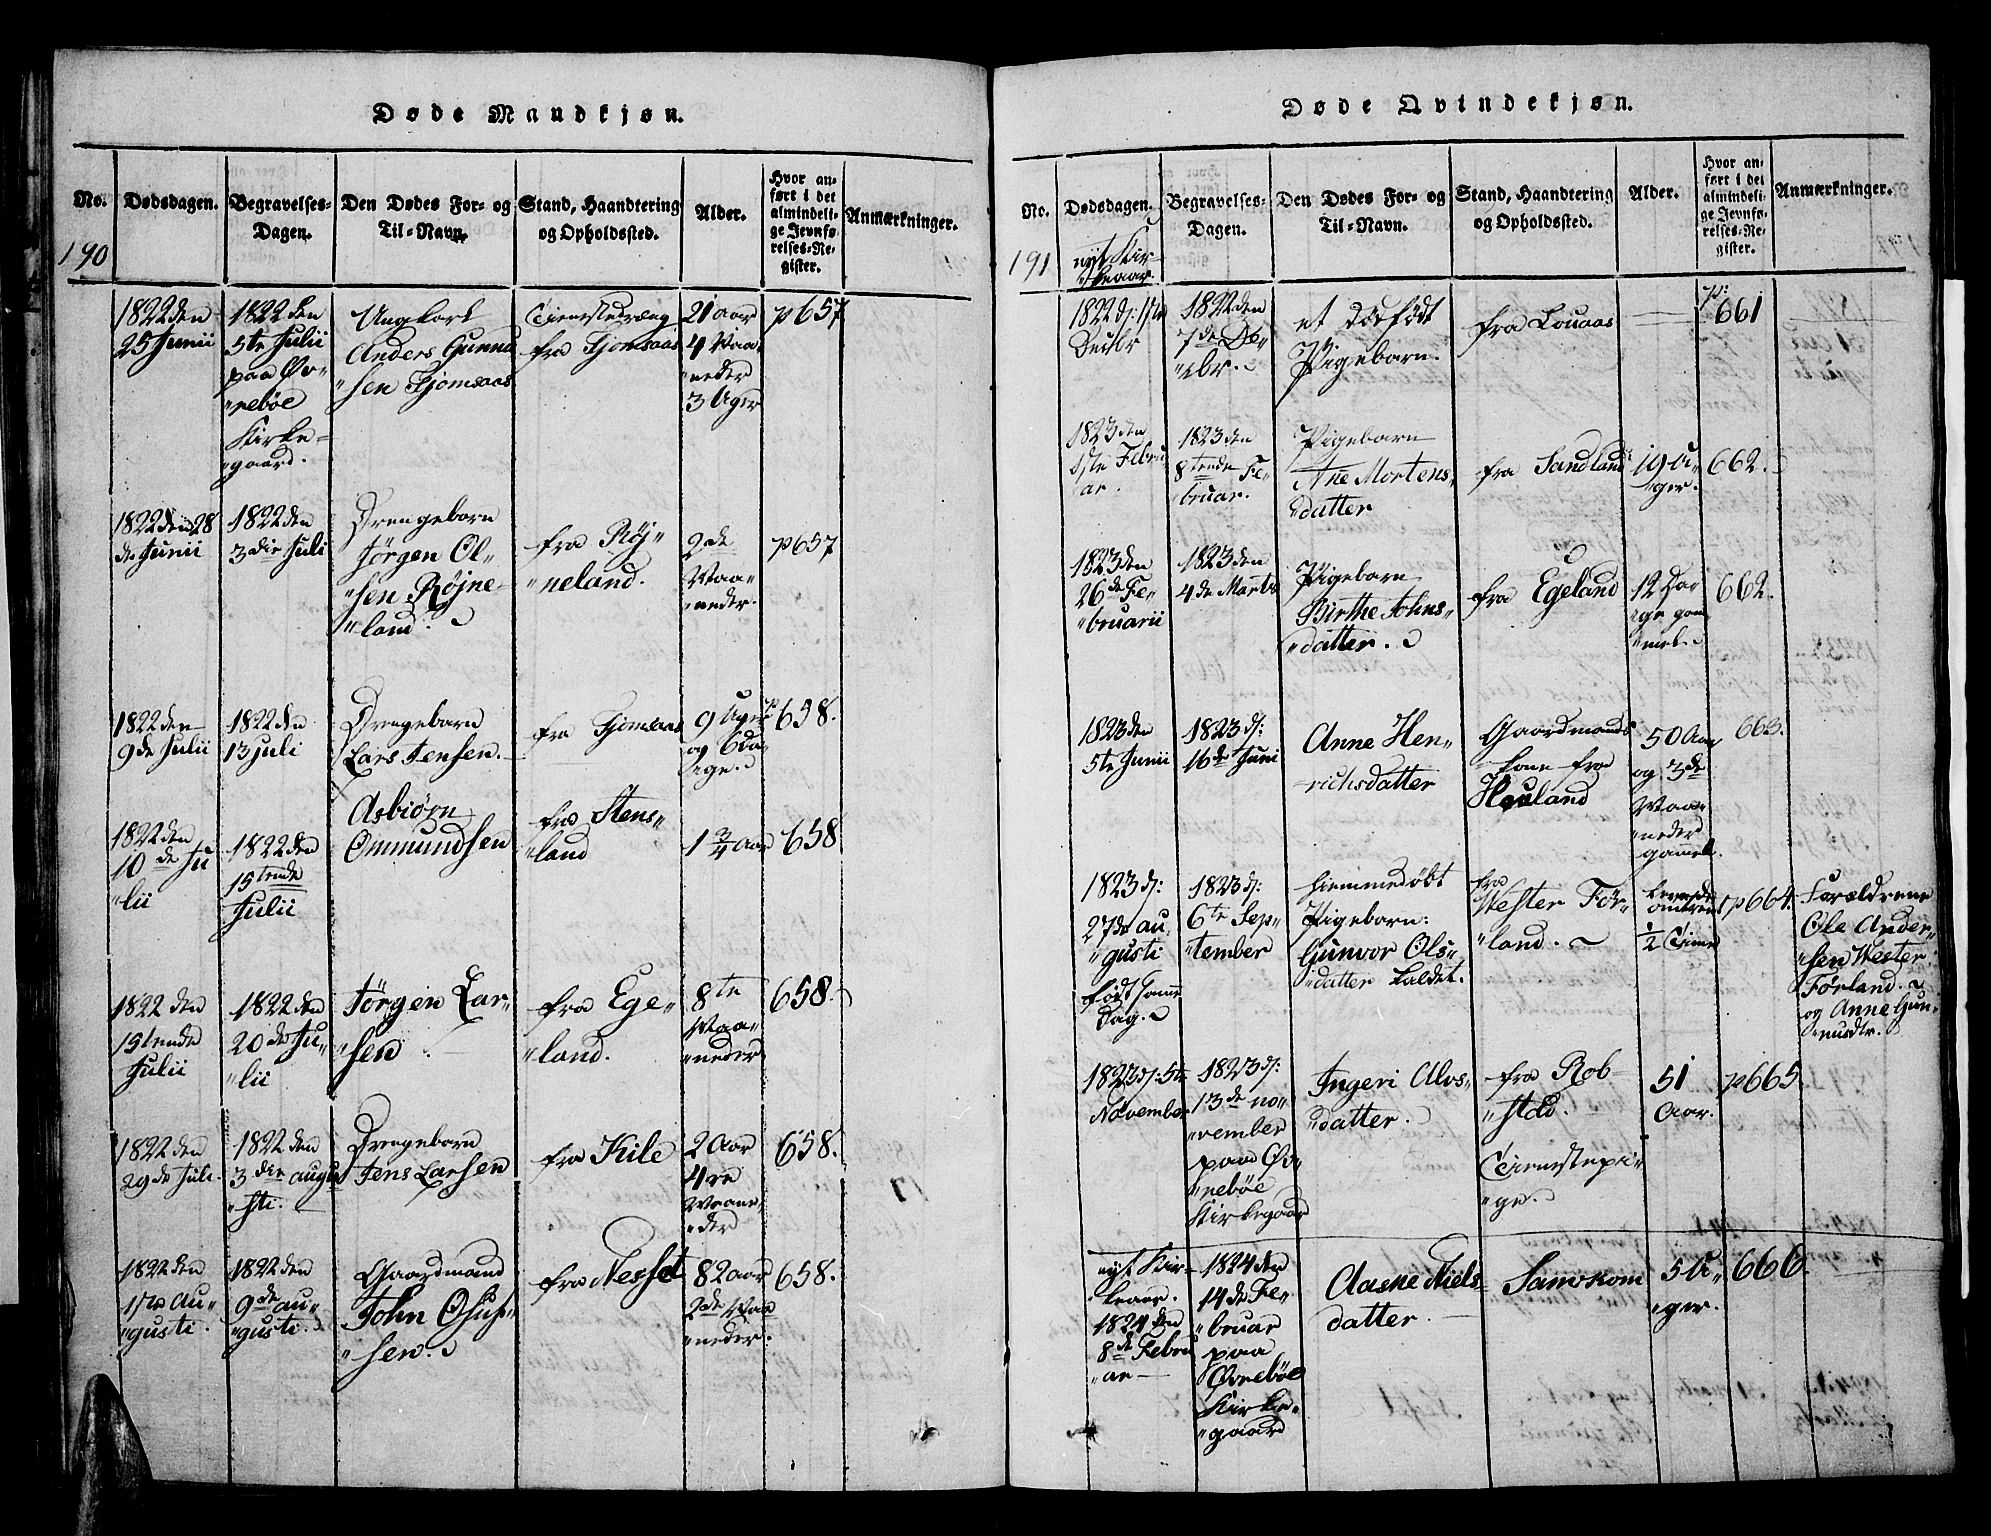 Døde Mandkjøn.
No.
Dødsdagen.
Begravelses-
Dagen.
Den Dødes For- og
Til-Navn.
Stand, Haandtering
og Opholdssted.
Alder.
Hvor an-
ført i det
almindeli-
ge Jevnfø-
relses-Re-
gister.
Anmærkninger.
190
1822 den
25 Junii
1822 den
5te Julii
paa Øv-
"rebøe
Kirke-
"gaard.
Ungkarl
Anders Gunnu
"sen Fjomsaas
Tienestedræng
fra Fjomsaas
21 aar
4 Maa-
"neder
3 Uger
p 657
1822 den 28
de Junii
1822 den
3die Juli
Drengebarn
Jörgen Ol-
"sen Röjne-
"land.
fra Röj-
"neland.
2de
Maa-
"neder.
p 657
1822 den
9de Julii
1822 den
13 juli
Drengebarn
Lars Jensen.
fra Fjomsaas
9 Uger
og 6 da-
"ge.
p 658.
1822 den
10de Ju
"lii
1822 den
15tende
Julii
Asbiørn
Ommundsen
fra Stens-
"land
1 3/4 aar
658
1822 den
15tende
Julii
1822 den
20de Ju-
"lii
Jörgen Lar-
"sen
fra Ege-
"land.
8te
Maa-
"neder
658.
1822 den
29de Juli.
1822 den
3die augu
"sti.
Drengebarn
Jens Larsen
fra Kile
2 Aar
4re
Maane-
"der
658.
1822 den
1ste Au-
"gusti.
1822 den
9de au-
"gusti.
Gaardmand
John Osuf-
"sen.
fra Nesset
82 aar
2de Maa
"neder.
658.
Døde Qvindekjøn.
No.
Dødsdagen.
Begravelses-
Dagen.
Den Dødes For- og
Til-Navn.
Stand, Haandtering
og Opholdssted.
Alder.
Hvor an-
ført i det
almindeli-
ge Jevnfø-
relses-Re-
gister.
Anmærkninger.
191
nyt Kir-
"keaar.
1822 d: 1ste
Decbr
1822 den
7de De-
"cbr.
et dødfødt
Pigebarn.
fra Louaas
p: 661
1823 den
1ste Febru
"ar.
1823 den
8tende Fe-
"bruar.
Pigebarn
Ane Mortens-
"datter
fra Sandland
19 U-
"ger.
662.
1823 den
26de Fe-
"bruarii
1823 den
4de Martii
Pigebarn
Birthe Johns-
"datter.
fra Egeland
12 Da-
"ge gam-
"mel.
662.
1823 den
5te Junii
1823 d:
16de Juni
Anne Hen-
richsdatter
Gaardmands
kone fra
Houland
50 Aar
og 3de
Maa-
"neder
gammel.
663.
1823 d:
27de au-
"gusti
født samme
Dag.
1823 d:
6te Sep-
"tember
hiemmedøbt
Pigebarn:
Gunvor Ols-
"datter kaldet.
fra
Wester För-
"land.
levede
omtrent
1/2 Time
p 664.
Forældrene
Ole Ander-
"sen Wester
Förland.
og Anne Gun-
"nusdtr.
1823 d: 5te
November
1823 d:
13de no-
"vember
paa Øv-
"rebøe
Kirkegaard
Ingeri Alvs-
"datter.
fra Rob-
"stad.
Tienestepi-
"ge.
51
Aar.
p 665.
nyt Kir-
keaar.
1824 den
8de Febru
"ar
1824 den
14de Fe-
"bruar
paa
Øvrebøe
Kirke-
"gaard
Aasne Niels-
datter.
Samvkom
5 U-
"ger.
666.